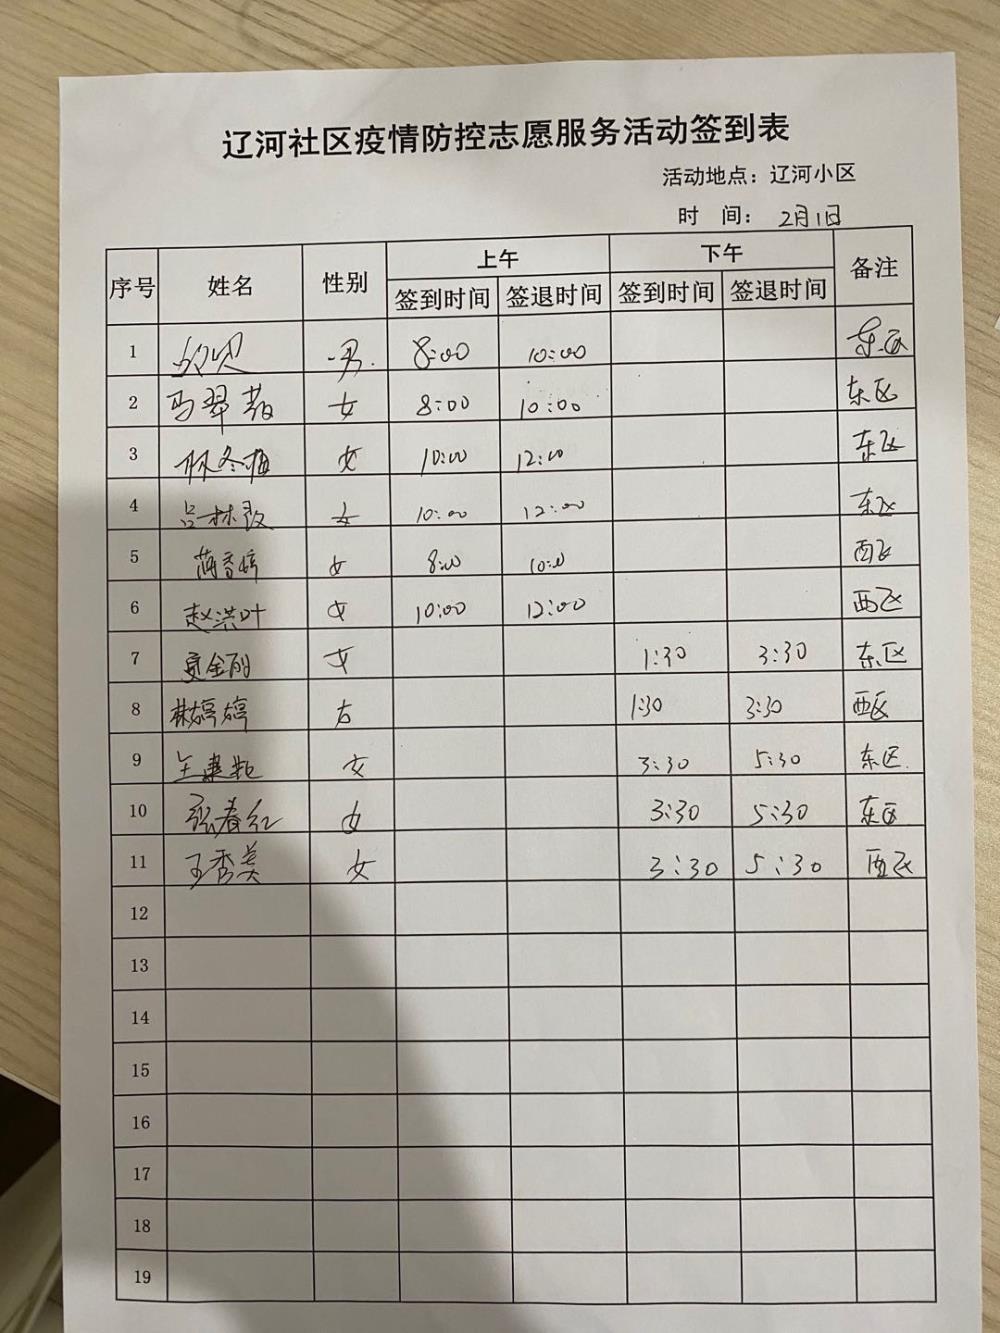 辽河社区疫情防控志愿服务活动签到表
活动地点：辽河小区
时 间： 2月1日
序号 姓名 性别 上午 下午 备注
签到时间 签退时间 签到时间 签退时间
1 男 8:00 10:00 东区
2 马翠 女 8:00 10:00 东区
3 林冬梅 女 10:00 12:00 东区
4 吕林 女 10:00 12:00 东区
5 蒋香婷 女 8:00 10:00 西区
6 赵洪叶 女 10:00 12:00 西区
7 女 1:30 3:30 东区
8 林婷婷 女 1:30 3:30 西区
9 女 3:30 5:30 东区
10 张春红 女 3:30 5:30 东区
11 王秀美 女 3:30 5:30 西区
12
13
14
15
16
17
18
19